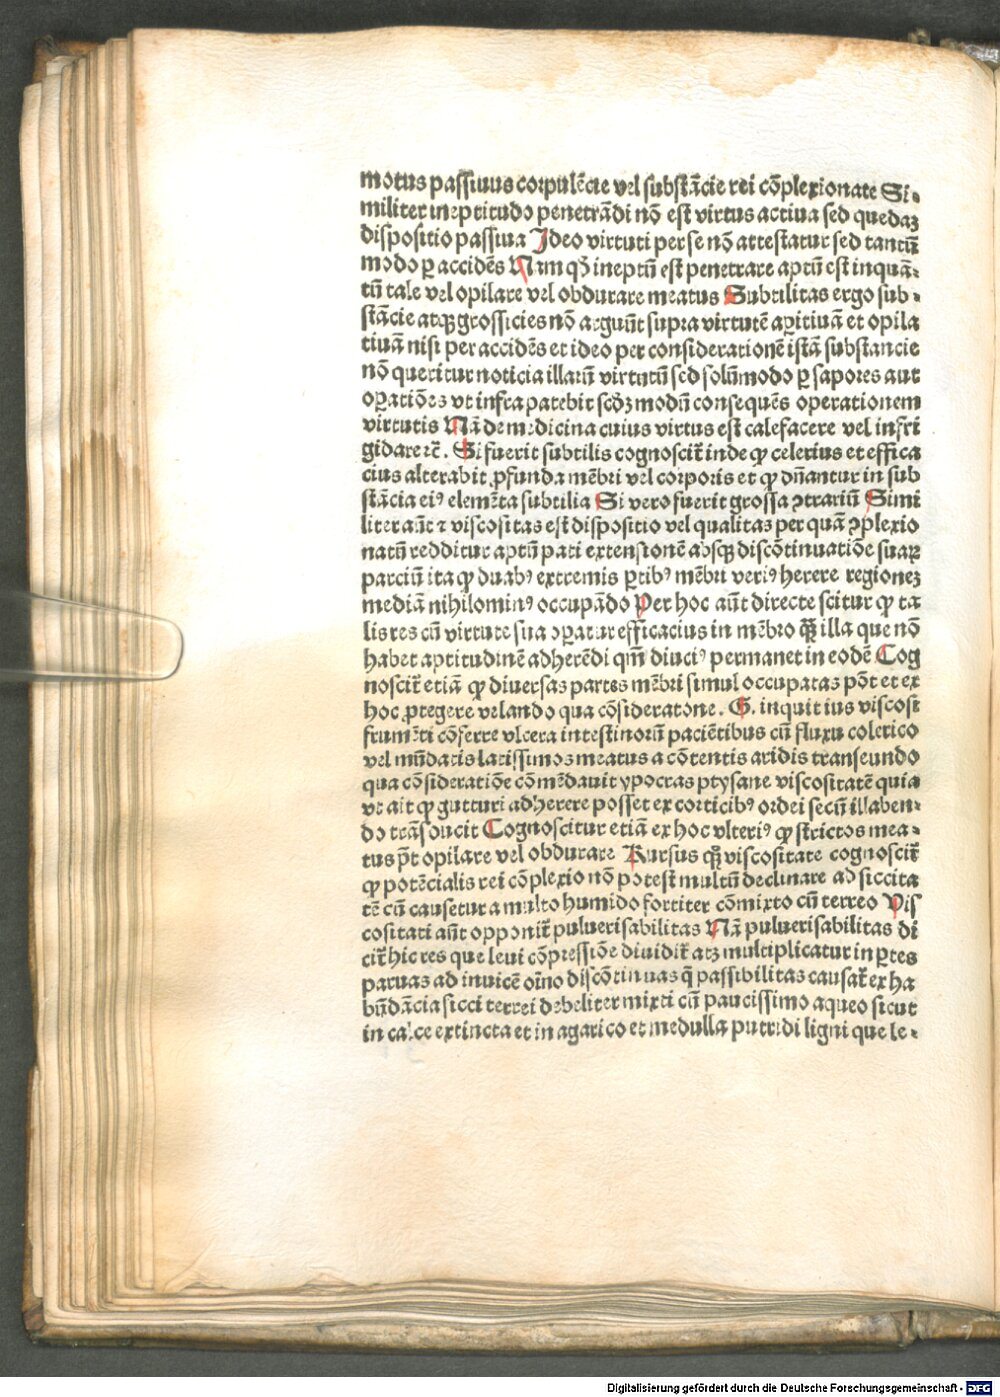 motus passiuus corpulẽcie vel substãcie rei cõplexionate Si-
militer ineptitudo penetrãdi nõ est virtus actiua sed quedaꝫ
dispositio passiua Ideo virtuti per se nõ attestatur sed tantũ
modo ꝑ accidẽs Nam qď ineptũ est penetrare aptũ est inquã-
tũ tale vel opilare vel obdurare meatus Subtilitas ergo sub-
stãcie atqꝫ grossicies nõ arguũt supra virtutẽ aꝑitiuã et opila
tiuã nisi per accidẽs et ideo per considerationẽ istã substancie
nõ queritur noticia illarũ virtutũ sed solũmodo ꝑ sapores aut
oꝑatiões vt infra patebit scďꝫ modũ consequẽs operationem
virtutis Nã de medicina cuius virtus est calefacere vel infri
gidare ⁊c̃. Si fuerit subtilis cognoscit᷑ inde ꝙ celerius et effica
cius alterabit ꝓfunda mẽbri vel corporis et ꝙ dñantur in sub
stãcia eiꝰ elemẽta subtilia Si vero fuerit grossa ꝯtrariũ Simi
liter aũt ⁊ viscositas est dispositio vel qualitas per quã ꝯplexio
natũ redditur aptũ pati extensionẽ absqꝫ discõtinuatiõe suaꝝ
parciũ ita ꝙ duabꝰ extremis ꝑtibꝰ mẽbri veriꝰ herere regioneꝫ
mediã nihilominꝰ occupãdo Per hoc aũt directe scitur ꝙ ta
lis res cũ virtute sua oꝑatur efficacius in mẽbro qꝫ̃ illa que nõ
habet aptitudinẽ adherẽdi qm̃ diuciꝰ permanet in eodẽ Cog
noscit᷑ etiã ꝙ diuersas partes mẽbri simul occupatas põt et ex
hoc ꝓtegere velando qua cõsideratone. G. inquit ius viscosi
frumẽti cõferre vlcera intestinorũ paciẽtibus cũ fluxu colerico
vel mũdatis latissimos meatus a cõtentis aridis transeundo
qua cõsideratiõe cõmẽdauit ypocras ptysane viscositatẽ quia
vt ait ꝙ gutturi adherere posset ex corticibꝰ ordei secũ illaben-
do trãsducit Cognoscitur etiã ex hoc vlteriꝰ ꝙ strictos mea-
tus p̃t opilare vel obdurare Rursus qꝫ̃ viscositate cognoscit᷑
ꝙ potẽcialis rei cõplexio nõ potest multũ declinare ad siccita
tẽ cũ causetur a multo humido fortiter cõmixto cũ terreo Vis
cositati aũt opponit᷑ puluerisabilitas Nã pulueri sabilitas di
cit᷑ hic res que leui cõpressiõe diuidit᷑ atqꝫ multiplicatur in ꝑtes
paruas ad inuicẽ oĩno discõtinuas q̃ passibilitas causat᷑ ex ha
bũdãcia sicci terrei debeliter mixti cũ paucissimo aqueo sicut
in calce extincta et in agarico et medulla putridi ligni que le-
Digitalisierung gefördert durch die Deutsche Forschungsgemeinschaft - DFG